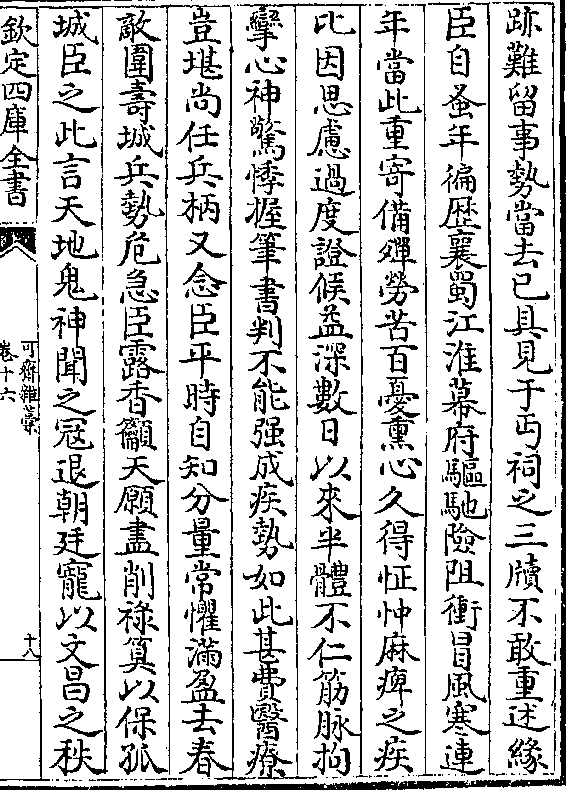 跡難留事勢當去已具見于丐祠之三牘不敢重述緣
臣自蚤年徧歴襄蜀江淮幕府驅馳險阻衝冒風寒連
年當此重寄備殫勞苦百憂熏心久得怔忡麻痺之疾
比因思慮過度證候益深數日以來半體不仁筋脉拘
攣心神驚悸握筆書判不能强成疾勢如此甚費醫療
豈堪尚任兵柄又念臣平時自知分量常懼滿盈去春
敵圍壽城兵勢危急臣露香籲天願盡削祿算以保孤
城臣之此言天地鬼神聞之冦退朝廷寵以文昌之秩
欽定四庫全書
可齋雜藁
卷十六
十八